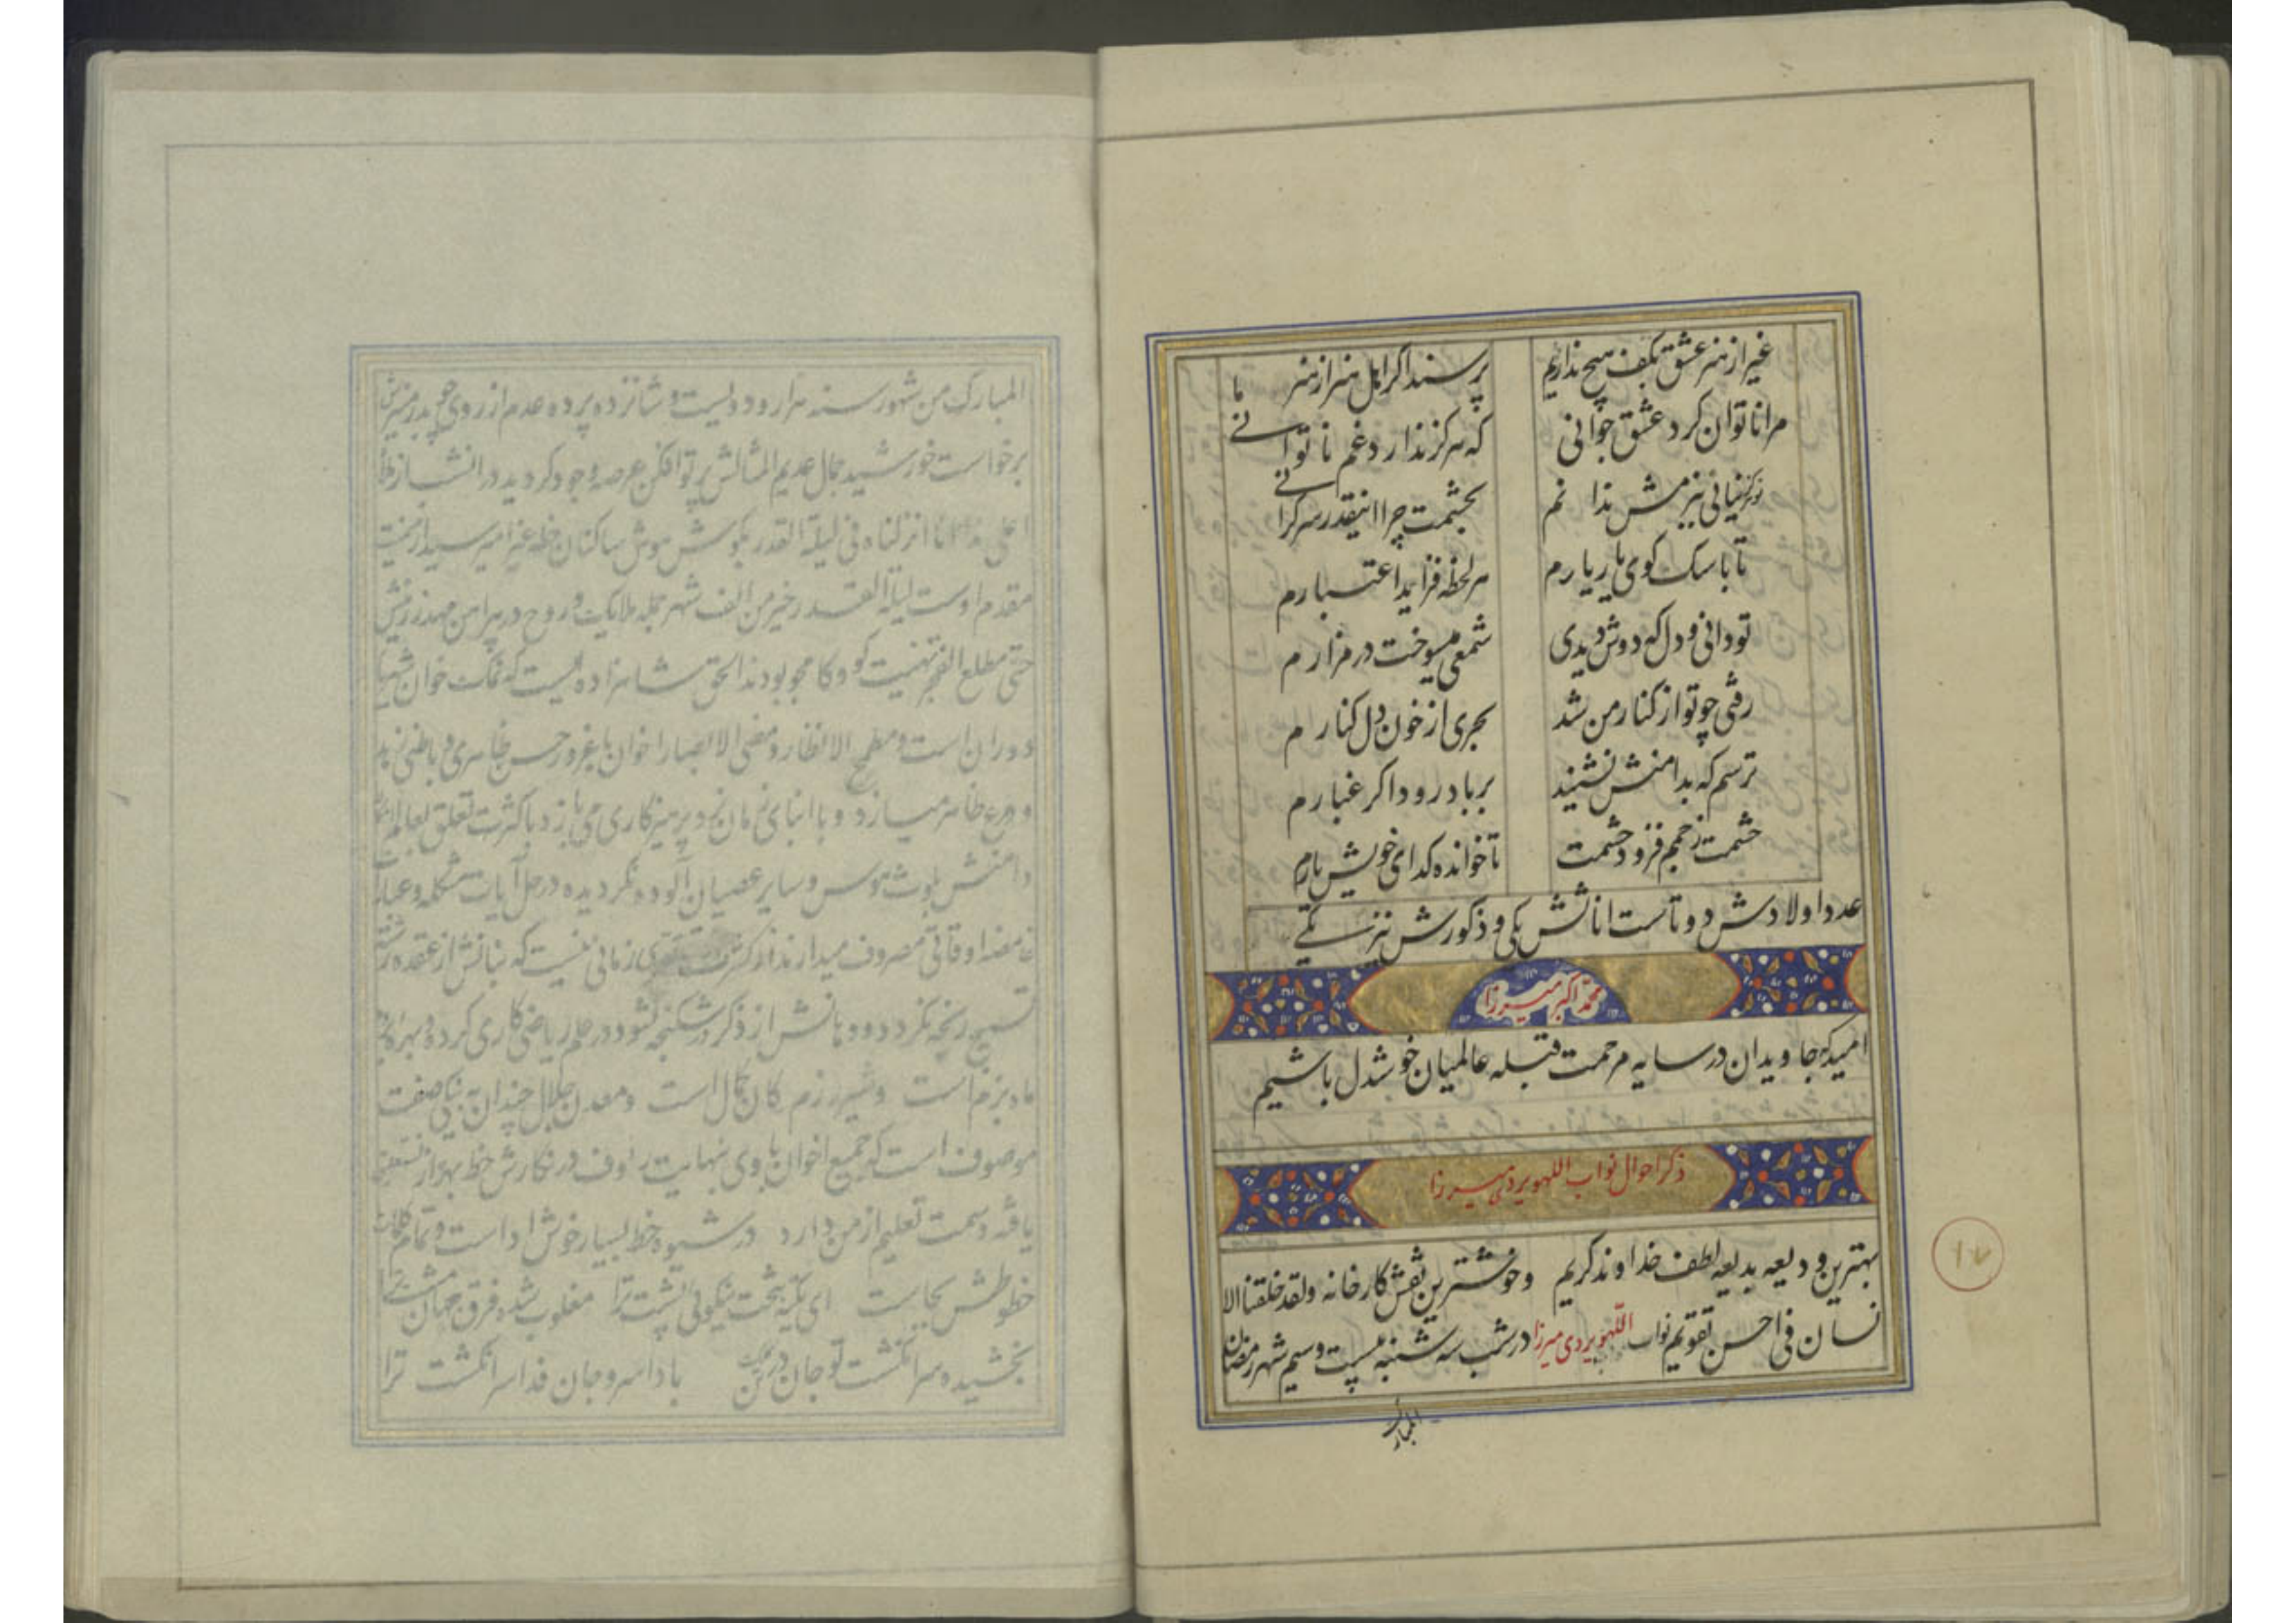 غیر از هنر عشق بکف هیچ نداریم پرسند اگر اهل هنر از هنر ما
مرا ناتوان کرد عشق جوانی که هرگز ندارد غم ناتوانے
بچشمت چرا اینقدر سرگرانے
تا با سگ کوی یار یارم هر لحظه فزاید اعتبارم
تو دانی و دل که دوش دیدی شمعی میسوخت در مزارم
رفتی چو تو از کنار من شد بحری از خون دل کنارم
ترسم که بدامنش نشیند بر باد رود اگر غبارم
حشمت ز جم فزود حشمت تا خوانده گدای خویش یارم
عدد اولادش دو تاست اناثش یکی و ذکورش نیز یکے
محمد اکبر میرزا
امید که جاویدان در سایه مرحمت قبله عالمیان خوشدل باشیم
ذکر احوال نواب اللهویردی میرزا
بهترین ودیعه بدیعه لطف خداوند کریم و خوشترین نقش کارخانه ولقد خلقنا الا
نسان فی احسن تقویم نواب اللهویردی میرزا در شب سه شنبه بیست و سیم شهر رمضان
المبارک
۱۷
المبارک من شهور سنه هزار و دویست و شانزده پرده عدم از روی
برخواست خورشید جمال عدیم المثالش پرتو افکن عرصه وجود گردید در آنشب از
انا انزلناه فی لیلة القدر بگوش هوش ساکنان خطه غبرا میرسید از یمن
مقدم اوست لیلة القدر خیر من الف شهر جمله ملایک و روح در پیرامن مهد زرینش
حتی مطلع الفجر تهنیت گو و کامجو بودند الحق شاهزاده ایست که نمک خوان
دوران است و مطمح الانظار و مضی الابصار اخوان با غرور حسن ظاهری و باطنی
و ورع ظاهر میسازد و با ابنای زمان نرد پرهیزکاری می بازد با کثرت تعلق بعالم
دامنش بلوث هوس و سایر عصیان آلوده نگردیده در حل آیات مشکله و
غامضه اوقاتی مصروف میدارند از کثرت زمانی نیست که بنانش از عقده
تسبیح رنجه نگردد و دهانش از ذکر در شکنجه نشود در علم ریاضی کاری کرده و بهره
ماه بزم است و شیر رزم کان کمال است و معدن جلال چندان به نیکی صفت
موصوف است که جمیع اخوان با وی بنهایت رئوف در نگارش خط بهره از نستعلیق
یافته و سمت تعلیم از من دارد در شیوه خط بسیار خوش ادا است و تمام
خطوطش بجاست ای تکیه بتخت نیکوئی پشت ترا مغلوب شده فرق جهان
بخشیده سر انگشت تو جان در تن بادا سر و جان فدا سر انگشت ترا